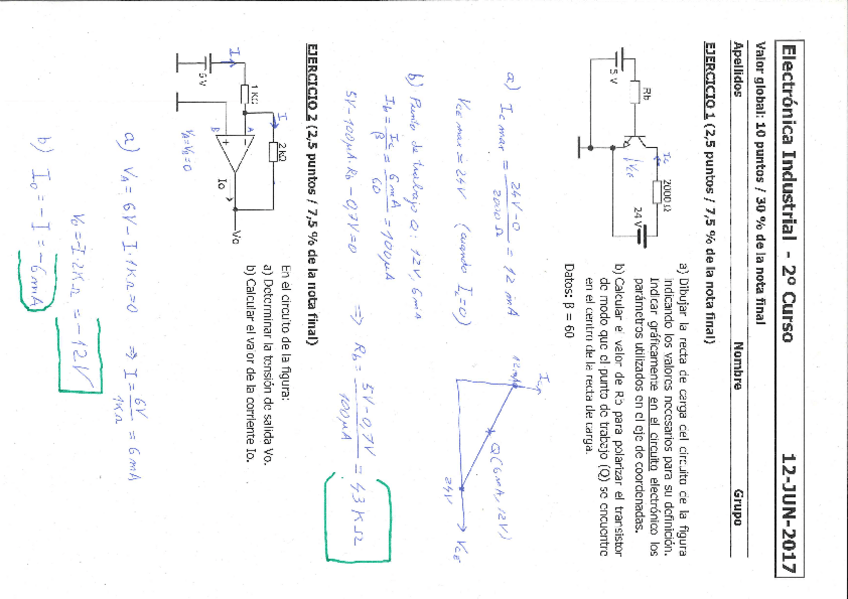 Electrónica Industrial - 2º Curso 12-JUN-2017
Valor global: 10 puntos / 30 % de la nota final
Apellidos Nombre Grupo
EJERCICIO 1 (2,5 puntos / 7,5 % de la nota final)
Rb
5 V
Ic
VCE
2000 Ω
24 V
a) Dibujar la recta de carga del circuito de la figura
indicando los valores necesarios para su definición.
Indicar gráficamente en el circuito electrónico los
parámetros utilizados en el eje de coordenadas.
b) Calcular el valor de Rb para polarizar el transistor
de modo que el punto de trabajo (Q) se encuentre
en el centro de la recta de carga.
Datos: β = 60
a) Ic max = 24V-0 / 2000 Ω = 12 mA
VCE max = 24V (cuando Ic=0)
12 mA
Q(6mA, 12V)
24V
VCE
b) Punto de trabajo Q: 12V, 6mA
Ib = Ic / β = 6mA / 60 = 100 μA
5V - 100μA·Rb - 0,7V = 0 => Rb = 5V - 0,7V / 100μA = 43 KΩ
EJERCICIO 2 (2,5 puntos / 7,5 % de la nota final)
6 V
I
1 KΩ
I
2 kΩ
A
B
Io
Vo
VA=VB=0
En el circuito de la figura:
a) Determinar la tensión de salida Vo.
b) Calcular el valor de la corriente Io.
a) VA = 6V - I·1KΩ = 0 => I = 6V / 1KΩ = 6 mA
Vo = -I·2KΩ = -12V
b) Io = -I = -6mA